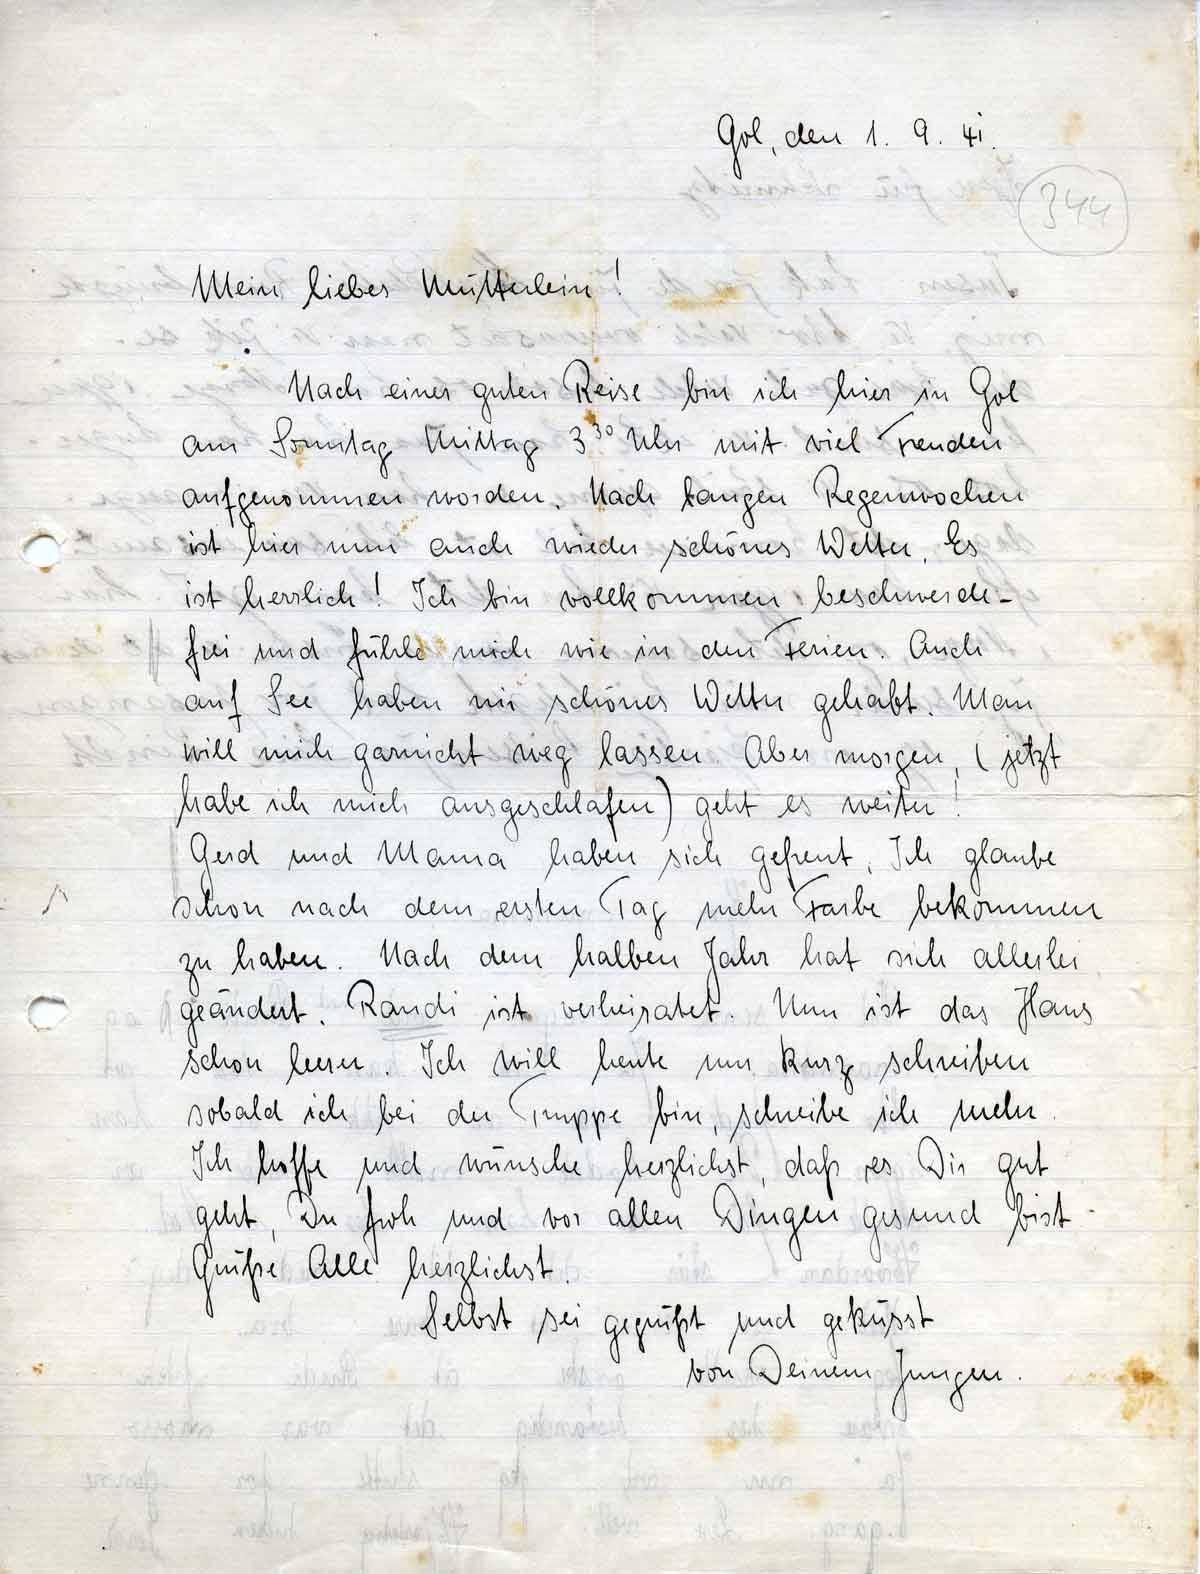 Gol, den 1. 9. 41.
344
Mein liebes Mütterlein!
Nach einer guten Reise bin ich hier in Gol
am Sonntag Mittag 3 30 Uhr mit viel Freuden
aufgenommen worden. Nach langen Regenwochen
ist hier nun auch wieder schönes Wetter. Es
ist herrlich! Ich bin vollkommen beschwerde-
frei und fühle mich wie in den Ferien. Auch
auf See haben wir schönes Wetter gehabt. Man
will mich garnicht weg lassen. Aber morgen, (jetzt
habe ich mich ausgeschlafen) geht es weiter!
Gerd und Mama haben sich gefreut. Ich glaube
schon nach dem ersten Tag mehr Farbe bekommen
zu haben. Nach dem halben Jahr hat sich allerlei
geändert. Randi ist verheiratet. Nun ist das Haus
schon leerer. Ich will heute nur kurz schreiben
sobald ich bei der Truppe bin, schreibe ich mehr.
Ich hoffe und wünsche herzlichst, daß es Dir gut
geht, Du froh und vor allen Dingen gesund bist.
Grüße Alle herzlichst.
Selbst sei gegrüßt und geküsst
von Deinem Jungen.